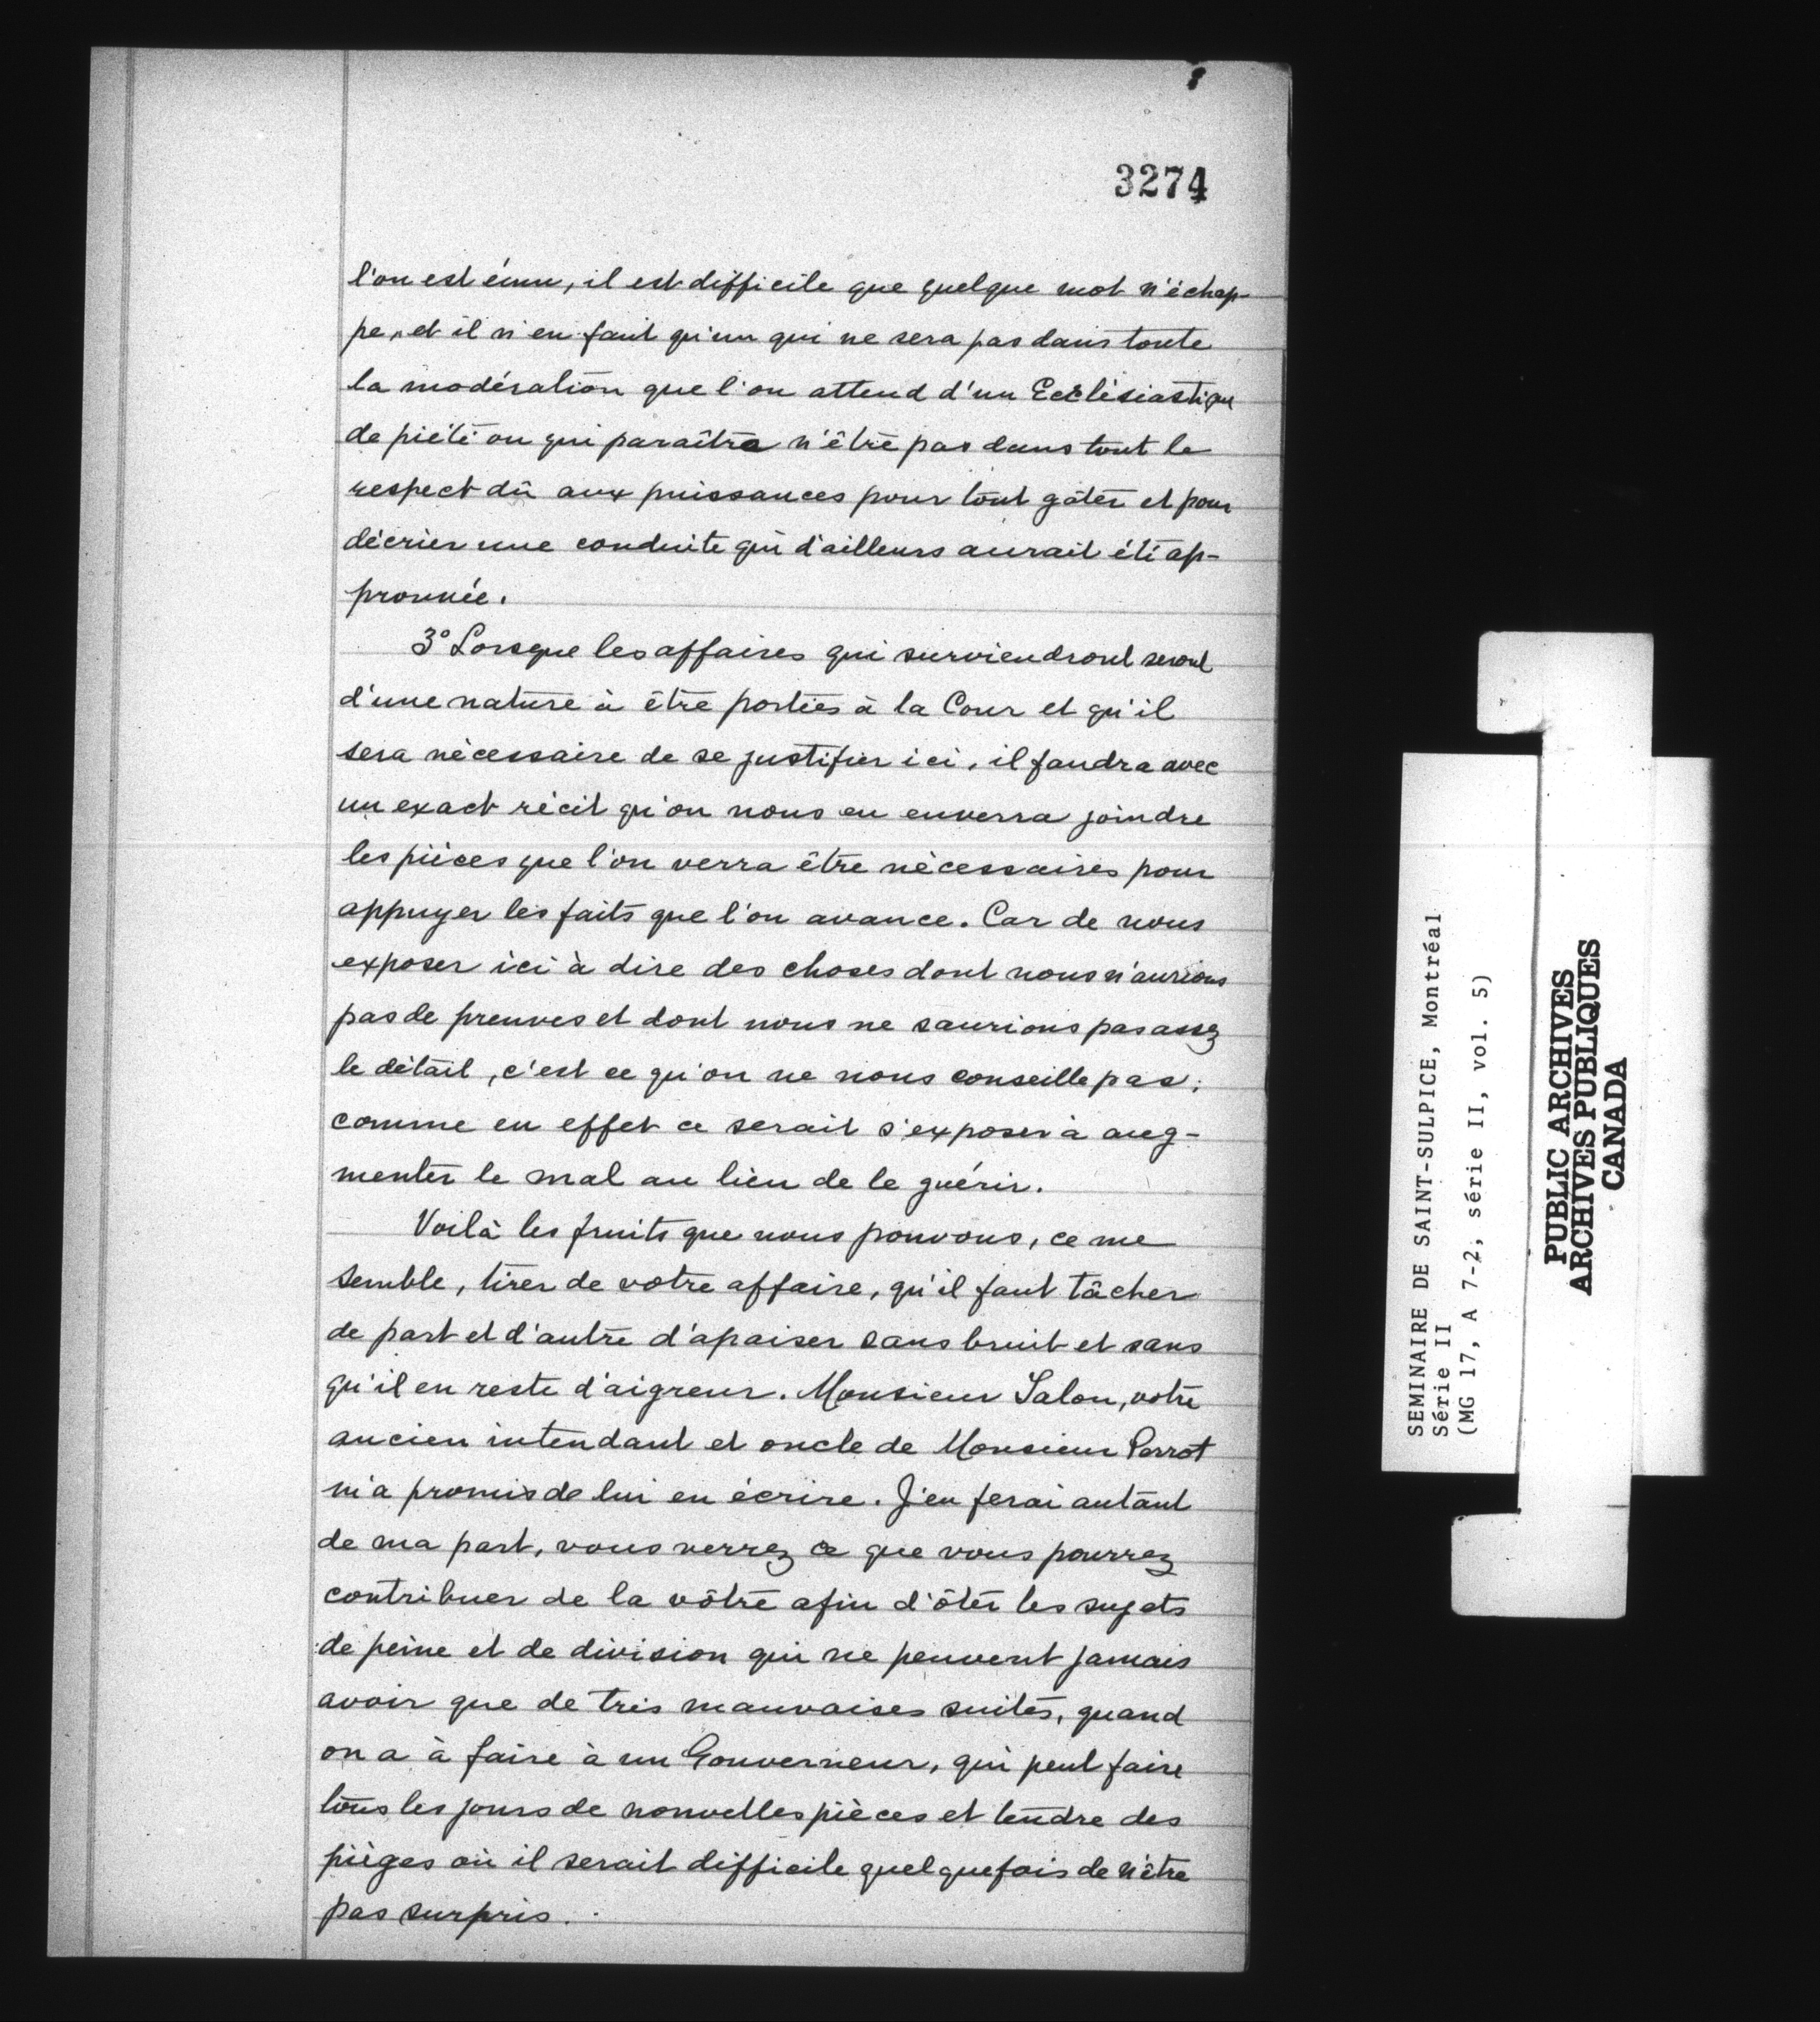 3274
l'on est ému, il est difficile que quelque mot n'échap-
pe, et il n'en faut qu'un qui ne sera pas dans toute
la modération que l'on attend d'un Ecclésiastique
de piété ou qui paraîtra n'être pas dans tout le
respect dû aux puissances pour tout gâter et pour
décrier une conduite qui d'ailleurs aurait été ap-
prouvée.
3º Lorsque les affaires qui surviendront seront
d'une nature à être portées à la Cour et qu'il
sera nécessaire de se justifier ici, il faudra avec
un exact récit qu'on nous en enverra joindre
les pièces que l'on verra être nécessaires pour
appuyer les faits que l'on avance. Car de nous
exposer ici à dire des choses dont nous n'aurions
pas de preuves et dont nous ne saurions pas assez
le détail, c'est ce qu'on ne nous conseille pas;
comme en effet ce serait s'exposer à aug-
menter le mal au lieu de le guérir.
Voilà les fruits que nous pouvons, ce me
semble, tirer de votre affaire, qu'il faut tâcher
de part et d'autre d'apaiser sans bruit et sans
qu'il en reste d'aigreur. Monsieur Talon, votre
ancien intendant et oncle de Monsieur Perrot
m'a promis de lui en écrire. J'en ferai autant
de ma part, vous verrez ce que vous pourrez
contribuer de la vôtre afin d'ôter les sujets
de peine et de division qui ne peuvent jamais
avoir que de très mauvaises suites, quand
on a à faire à un Gouverneur, qui peut faire
tous les jours de nouvelles pièces et tendre des
pièges où il serait difficile quelquefois de n'être
pas surpris.
SEMINAIRE DE SAINT-SULPICE, Montréal
Série II
(MG 17, A 7-2, série II, vol. 5)
PUBLIC ARCHIVES
ARCHIVES PUBLIQUES
CANADA